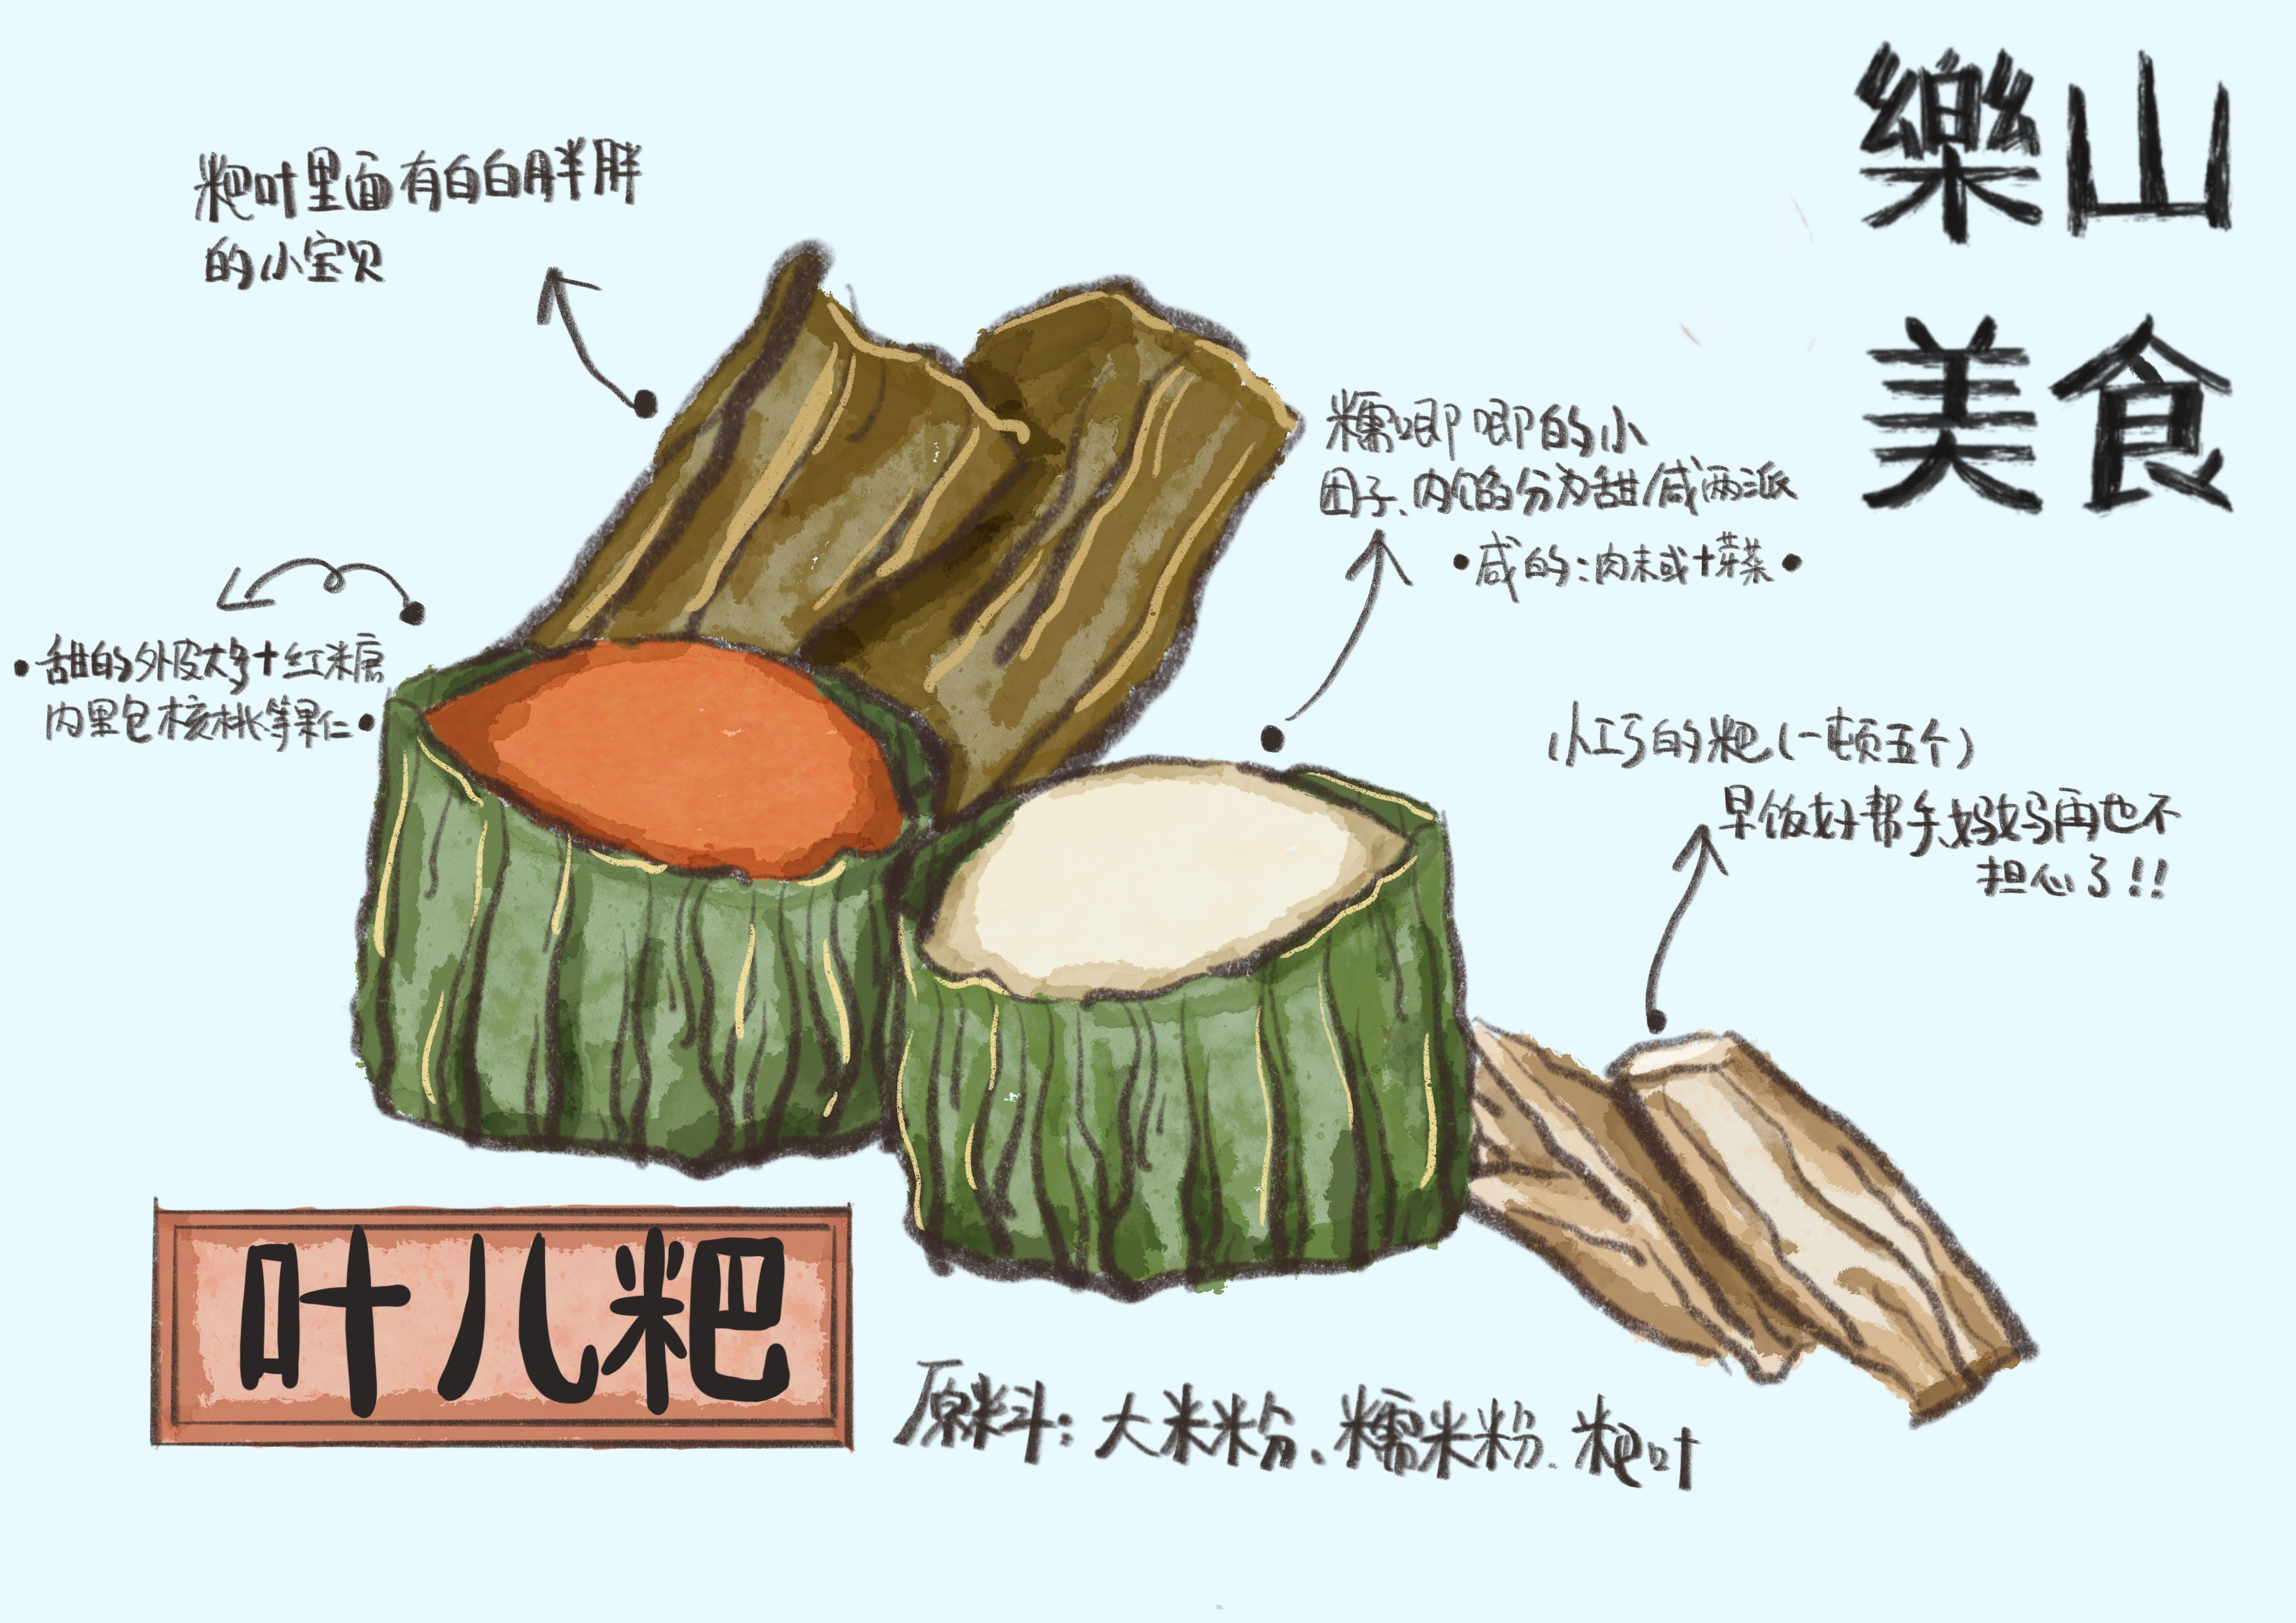 樂山
美食
粑叶里面有白白胖胖
的小宝贝
糯唧唧的小
团子、内馅分为甜/咸两派
•咸的:肉末或+芽菜•
•甜的外皮大多+红米糖
内里包核桃等果仁•
小巧的粑(一顿五个)
早饭好帮手、妈妈再也不
担心了!!
叶儿粑
原料:大米粉、糯米粉、粑叶